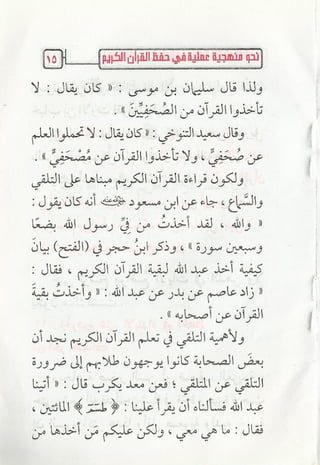 نحو منهجية عملية في حفظ القرآن الكريم
١٥
ولذا قال سليمان بن موسى : « كان يقال : لا
تأخذوا القرآن من الصُّحَفِيِّينَ » .
وقال سعيد التنوخي : « كان يقال : لا تحملوا العلم
عن صُحَفِيٍّ ، ولا تأخذوا القرآن عن مُصْحَفِيٍّ » .
ولكون قراءة القرآن الكريم مبناها على التلقي
والسَّماع ، جاء عن ابن مسعود رضي الله عنه أنه كان يقول :
« والله ، لقد أخذتُ من فِيِّ رسول الله بضعًا
وسبعين سورة » ، وذكر ابنُ حجر في (الفتح) بيانَ
كيفية أخذ عبد الله لبقية القرآن الكريم ، فقال :
« زاد عاصم عن بدر عن عبد الله : « وأخذتُ بقيةَ
القرآن عن أصحابه » .
ولأهمية التلقي في تعلم القرآن الكريم نجد أن
بعضَ الصحابة كانوا يوجهون طلابهم إلى ضرورة
التلقي عن المتلقي ؛ فعن معد يكرب قال : « أتينا
عبد الله فسألناه أن يقرأ علينا : ﴿ طسٓمٓ ﴾ المائتين ،
فقال : ما هي معي ، ولكن عليكم مَن أخذها من